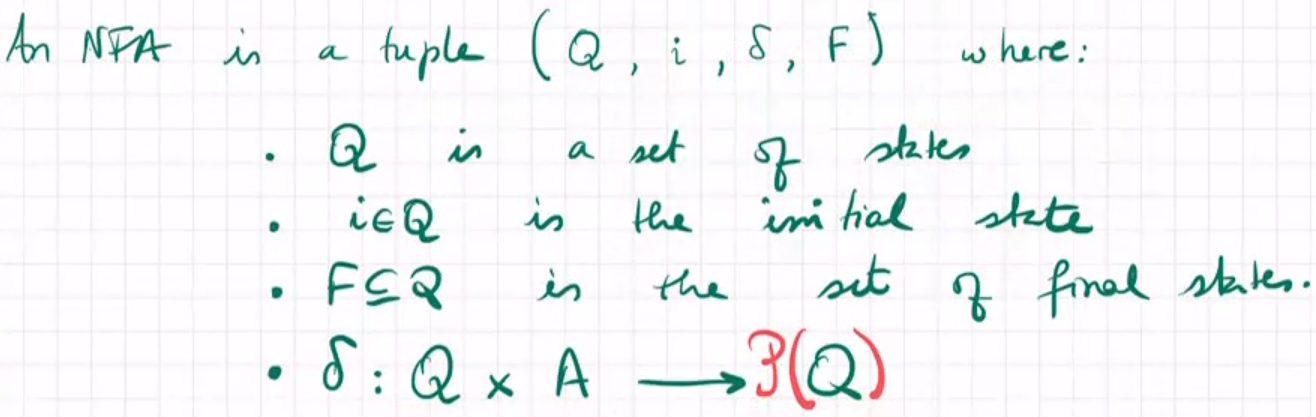 An NFA is a tuple (Q, i, δ, F) where:
• Q is a set of states
• i∈Q is the initial state
• F⊆Q is the set of final states.
• δ : Q × A ⟶ P(Q)